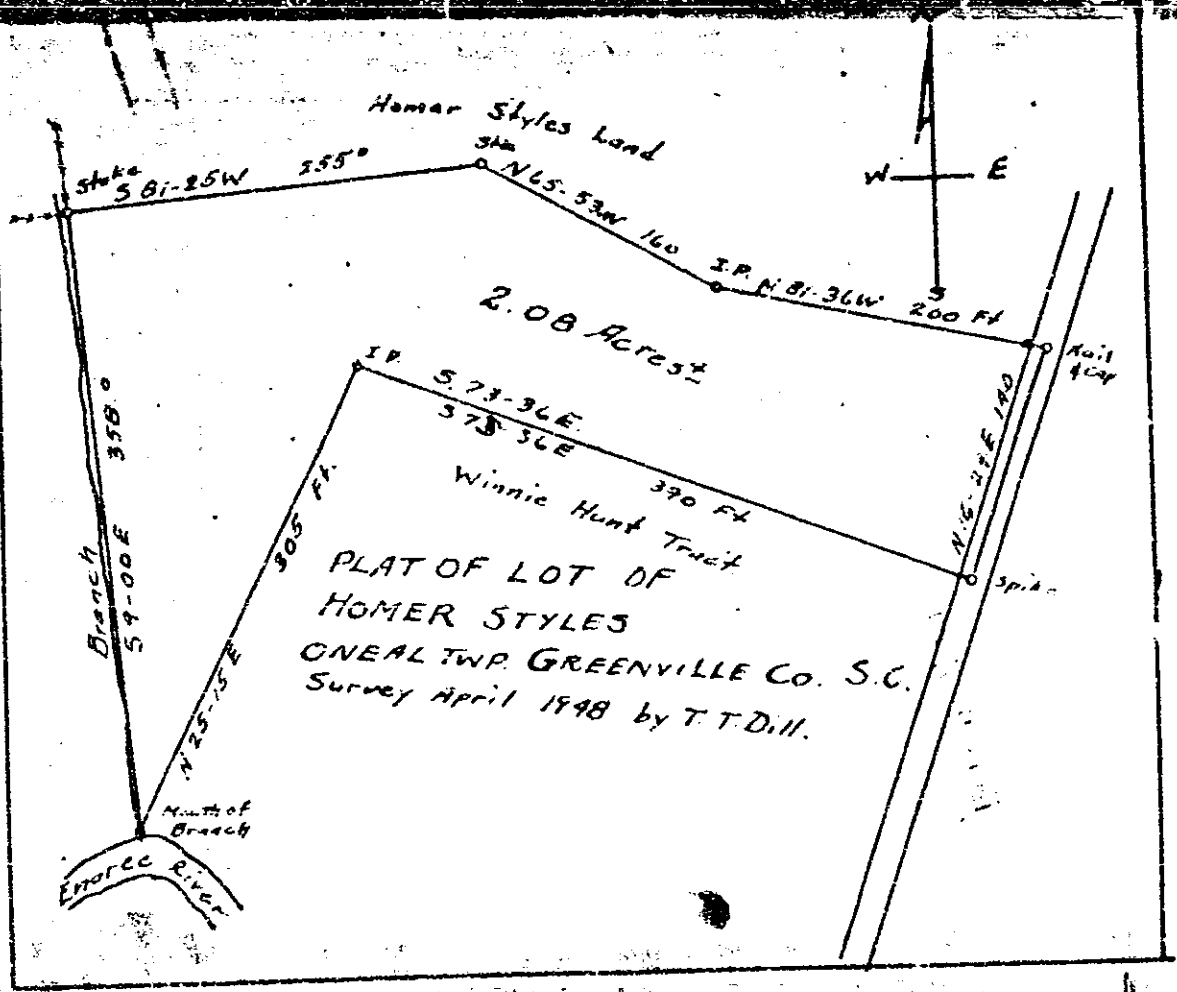 Homer Styles Land
Stake
S 81-25W 255°
N 65-53W 160
I.P. N 81-36W 200 Ft
W E
S
Nail
& Cap
2.08 Acres ±
I.P.
S. 73-36 E.
S 73 36 E
390 Ft
N. 16-24 E 140
Spike
Winnie Hunt Tract
Branch
S 9-00 E 358.°
305 Ft.
N 25-15 E
PLAT OF LOT OF
HOMER STYLES
ONEAL TWP. GREENVILLE Co. S.C.
Survey April 1948 by T. T. Dill.
Mouth of
Branch
Enoree River